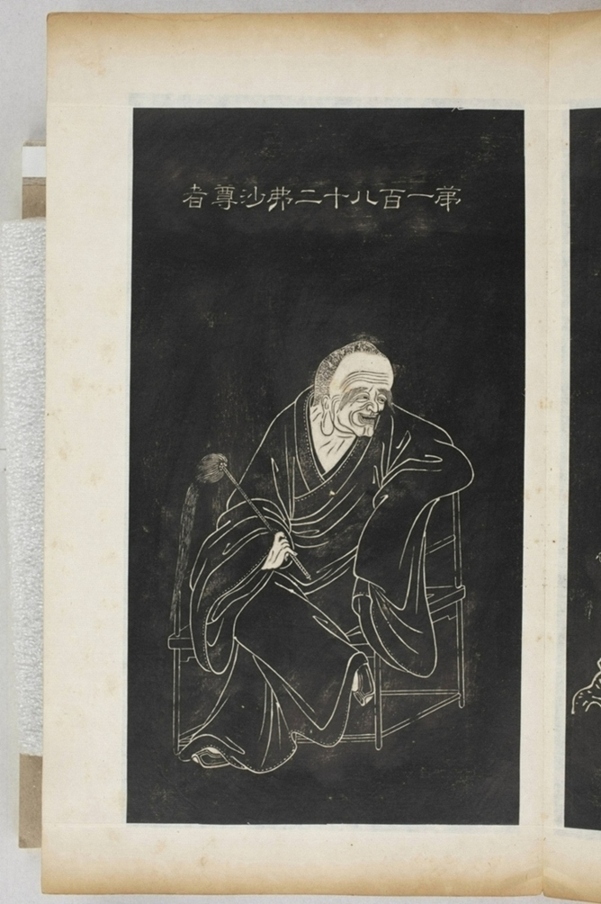 苐一百八十二弗沙尊者